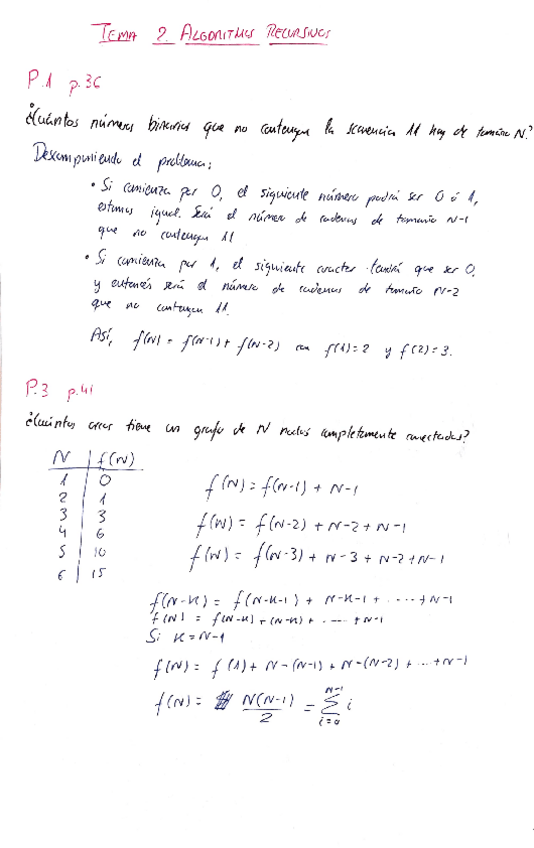 TEMA 2. ALGORITMOS RECURSIVOS
P.1 p.36
¿Cuántos números binarios que no contengan la secuencia 11 hay de tamaño N?
Descomponiendo el problema:
• Si comienza por 0, el siguiente número podrá ser 0 ó 1,
estamos igual. Será el número de cadenas de tamaño N-1
que no contengan 11
• Si comienza por 1, el siguiente caracter tendrá que ser 0,
y entonces será el número de cadenas de tamaño N-2
que no contengan 11.
Así, f(N) = f(N-1) + f(N-2) con f(1)=2 y f(2)=3.
P.3 p.41
¿Cuántos arcos tiene un grafo de N nodos completamente conectados?
N f(N)
1 0
2 1
3 3
4 6
5 10
6 15
f(N) = f(N-1) + N-1
f(N) = f(N-2) + N-2 + N-1
f(N) = f(N-3) + N-3 + N-2 + N-1
f(N-K) = f(N-K-1) + N-K-1 + ..... + N-1
f(N) = f(N-K) + (N-K) + ..... + N-1
Si K = N-1
f(N) = f(1) + N-(N-1) + N-(N-2) + ... + N-1
f(N) = N(N-1)/2 = ∑ i=0 N-1 i